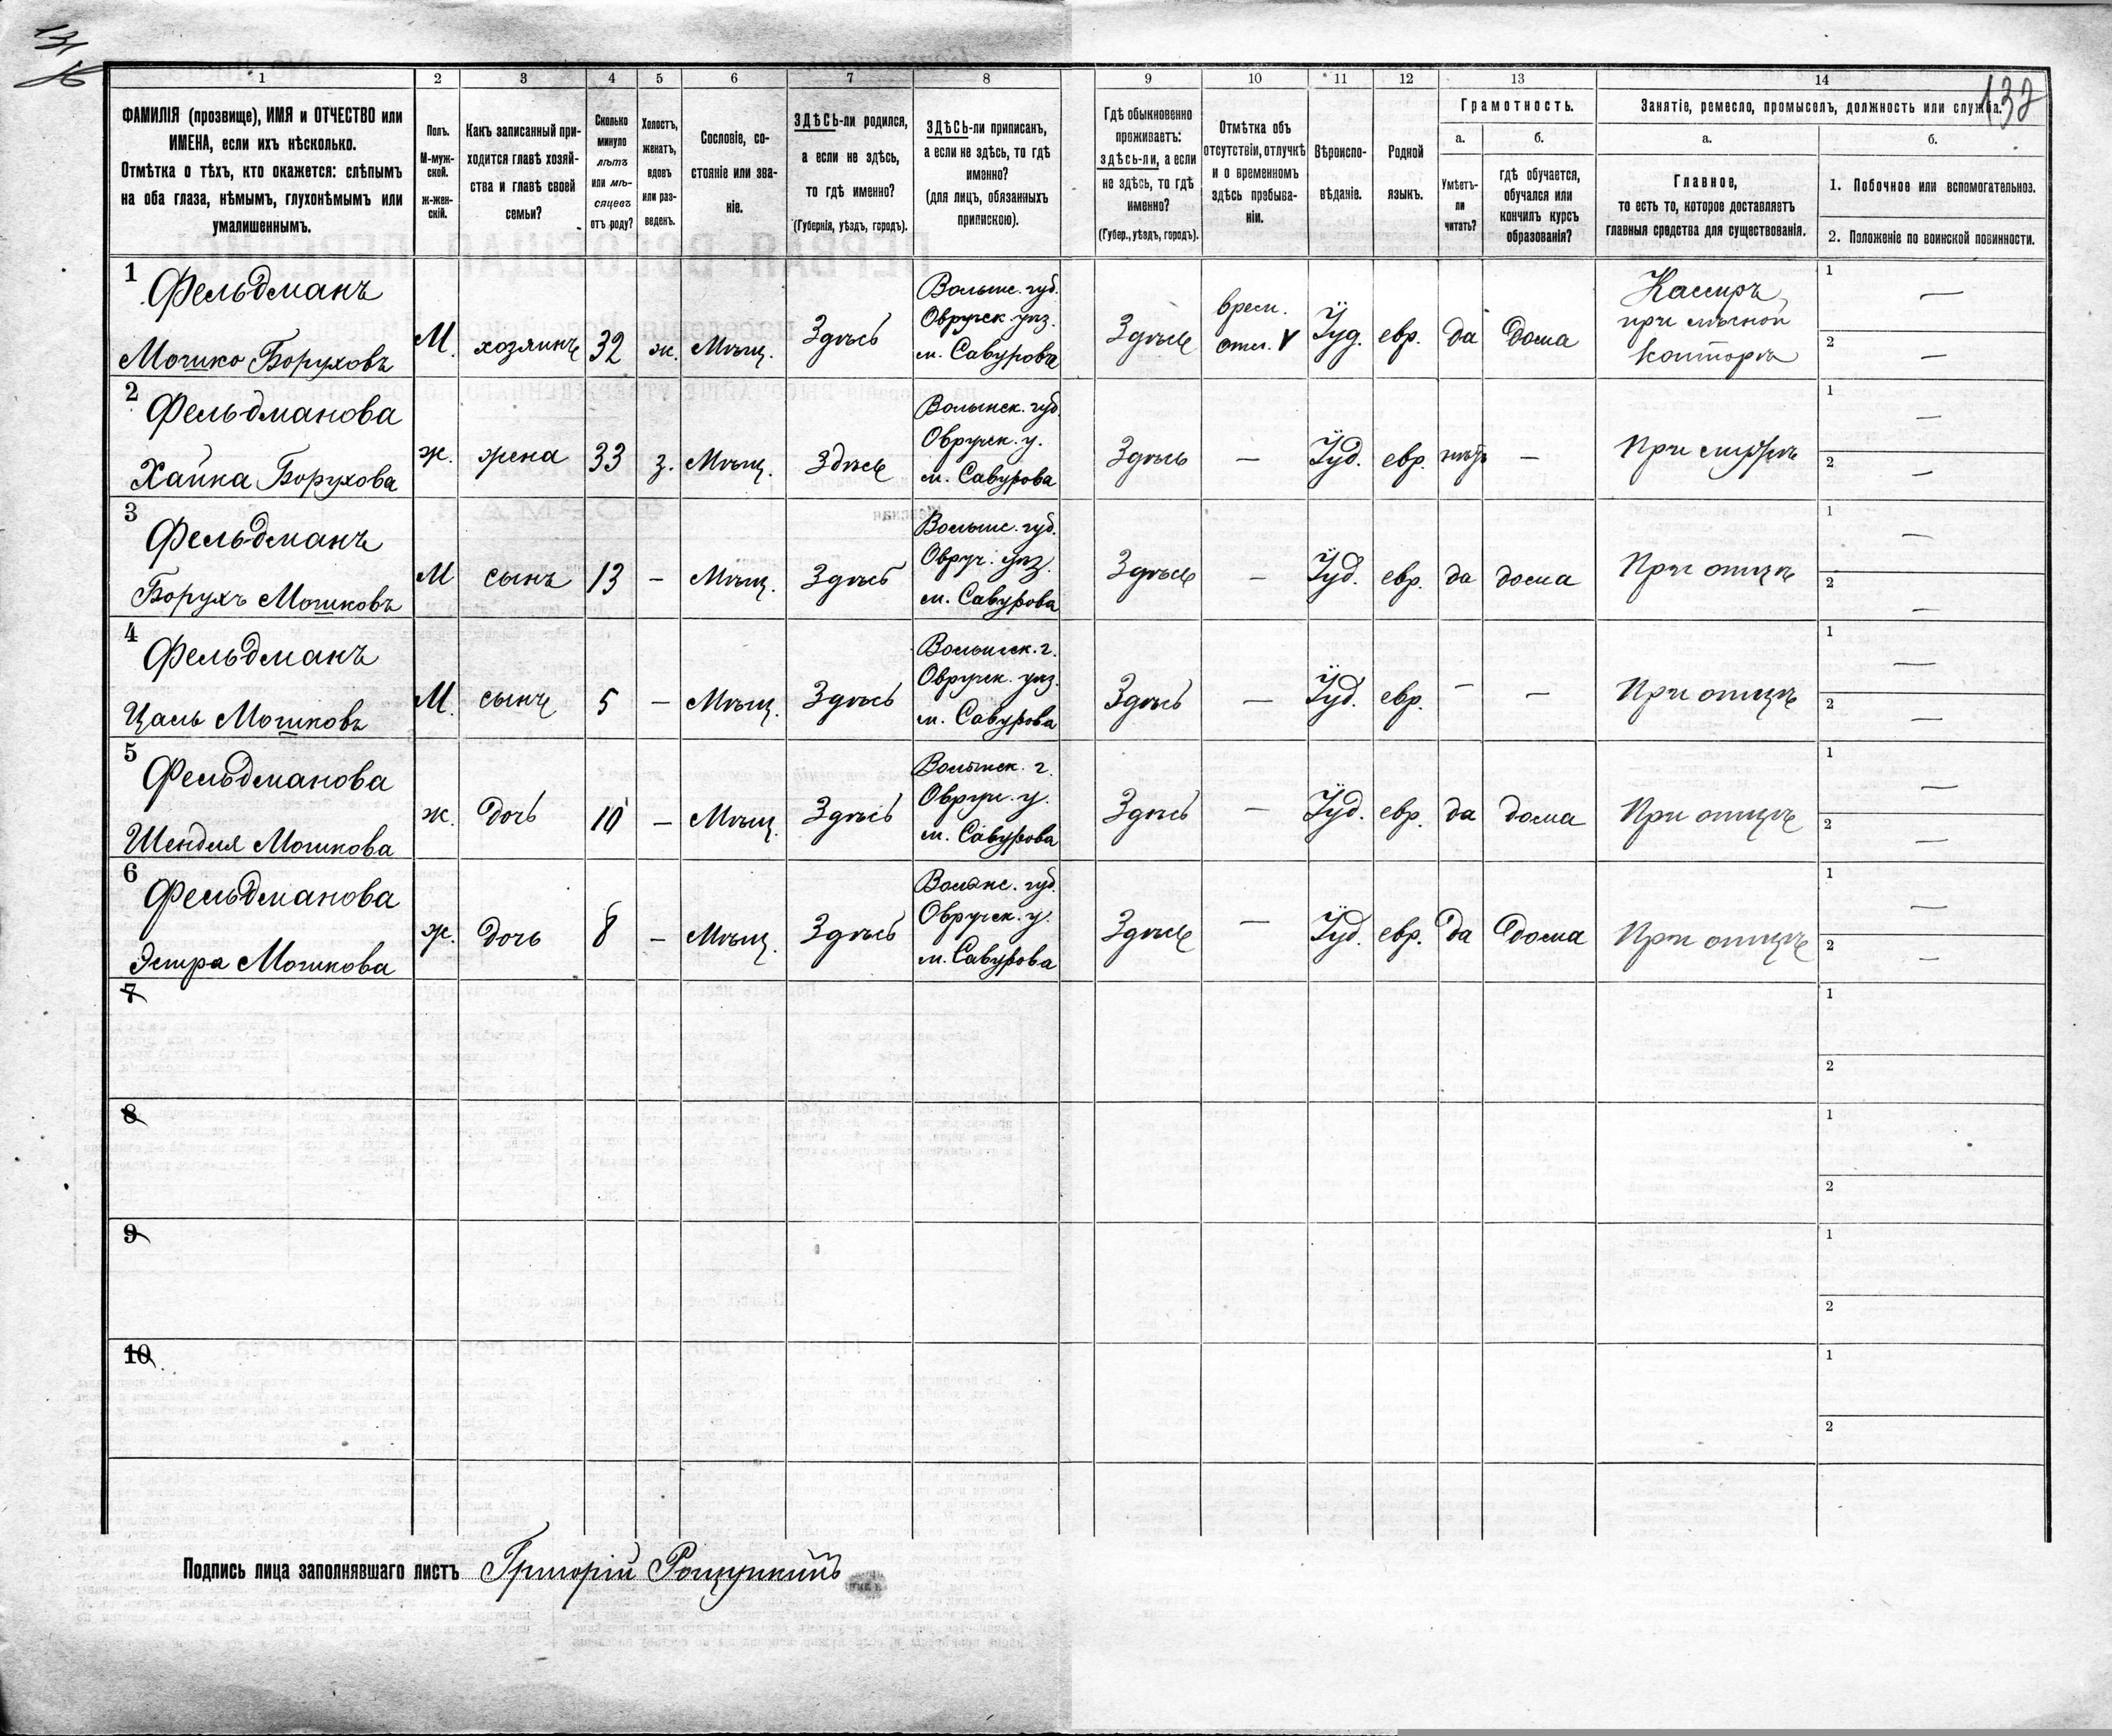 131
132
1
2
3
4
5
6
7
8
9
10
11
12
13
14
ФАМИЛІЯ (прозвище), ИМЯ и ОТЧЕСТВО или
ИМЕНА, если ихъ нѣсколько.
Отмѣтка о тѣхъ, кто окажется: слѣпымъ
на оба глаза, нѣмымъ, глухонѣмымъ или
умалишеннымъ.
Полъ.
М-муж-
ской.
ж-жен-
скій.
Какъ записанный при-
ходится главѣ хозяй-
ства и главѣ своей
семьи?
Сколько
минуло
лѣтъ
или мѣ-
сяцевъ
отъ роду?
Холостъ,
женатъ,
вдовъ
или раз-
веденъ.
Сословіе, со-
стояніе или зва-
ніе.
ЗДѢСЬ-ли родился,
а если не здѣсь,
то гдѣ именно?
(Губернія, уѣздъ, городъ).
ЗДѢСЬ-ли приписанъ,
а если не здѣсь, то гдѣ
именно?
(для лицъ, обязанныхъ
припискою).
Гдѣ обыкновенно
проживаетъ:
здѣсь-ли, а если
не здѣсь, то гдѣ
именно?
(Губер., уѣздъ, городъ).
Отмѣтка объ
отсутствіи, отлучкѣ
и о временномъ
здѣсь пребыва-
ніи.
Вѣроиспо-
вѣданіе.
Родной
языкъ.
Грамотность.
а.
Умѣетъ-
ли
читать?
б.
гдѣ обучается,
обучался или
кончилъ курсъ
образованія?
Занятіе, ремесло, промыселъ, должность или служба.
а.
Главное,
то есть то, которое доставляетъ
главныя средства для существованія.
б.
1. Побочное или вспомогательное.
2. Положеніе по воинской повинности.
1
Фельдманъ
Мошко Боруховъ
М.
хозяинъ
32
ж.
Мѣщ.
Здѣсь
Волынс. губ.
Овручск. уѣз.
м. Савурова
Здѣсь
врем.
отл. V
Іуд.
евр.
да
дома
Кассиръ
при лѣсной
конторѣ
1 —
2 —
2
Фельдманова
Хайка Борухова
ж.
жена
33
з.
Мѣщ.
Здѣсь
Волынск. губ.
Овручск. у.
м. Савурова
Здѣсь
—
Іуд.
евр.
нѣтъ
—
При мужѣ
1 —
2 —
3
Фельдманъ
Борухъ Мошковъ
М
сынъ
13
—
Мѣщ.
Здѣсь
Волынс. губ.
Овруч. уѣз.
м. Савурова
Здѣсь
—
Іуд.
евр.
да
дома
При отцѣ
1 —
2 —
4
Фельдманъ
Цаль Мошковъ
М.
сынъ
5
—
Мѣщ.
Здѣсь
Волынск. г.
Овручск. уѣз.
м. Савурова
Здѣсь
—
Іуд.
евр.
—
—
При отцѣ
1 —
2 —
5
Фельдманова
Шендля Мошкова
ж.
дочь
10
—
Мѣщ.
Здѣсь
Волынск. г.
Овруч. у.
м. Савурова
Здѣсь
—
Іуд.
евр.
да
дома
При отцѣ
1 —
2 —
6
Фельдманова
Эстра Мошкова
ж.
дочь
8
—
Мѣщ.
Здѣсь
Волынс. губ.
Овручск. у.
м. Савурова
Здѣсь
—
Іуд.
евр.
да
дома
При отцѣ
1 —
2 —
7
1
2
8
1
2
9
1
2
10
1
2
Подпись лица заполнявшаго листъ Григорій